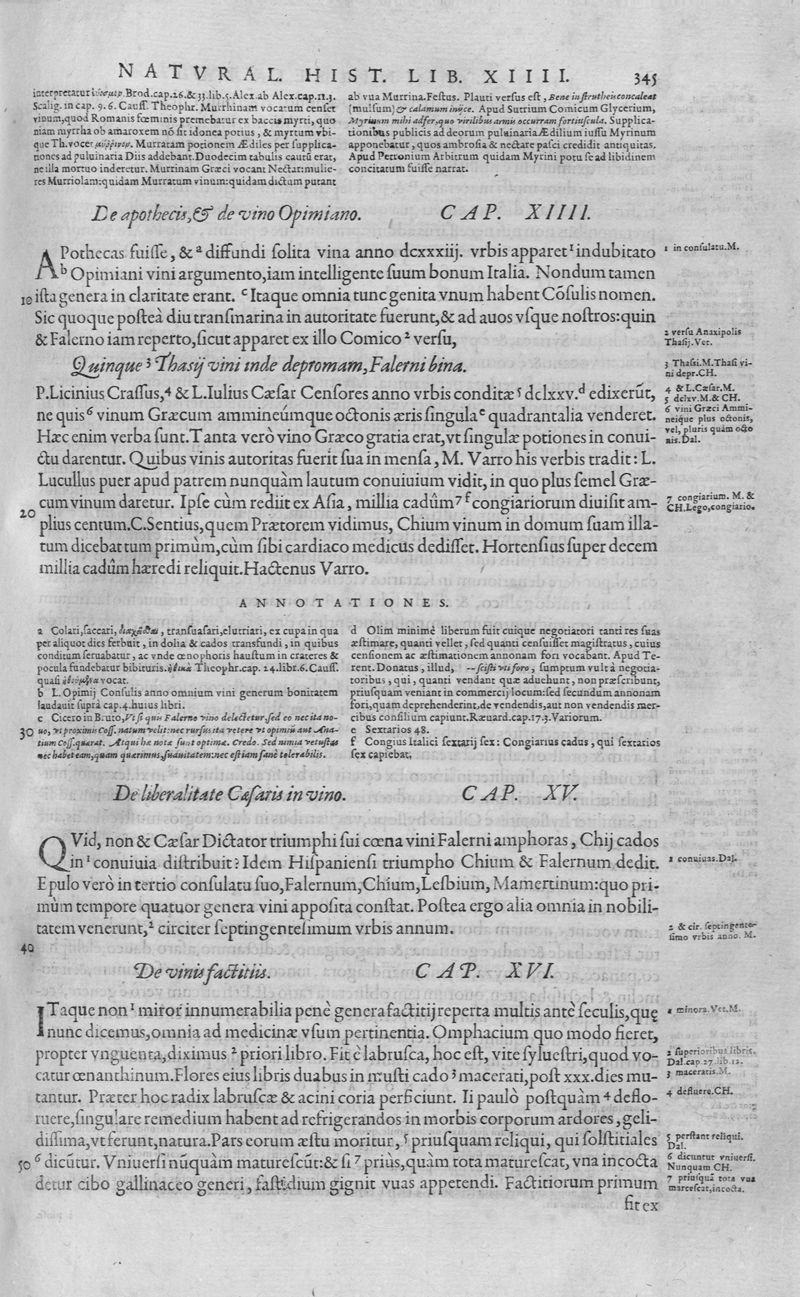 NATVRAL. HIST. LIB. XIIII. 345
interpretatur Brod.cap.26.&33.lib.5.Alex ab Alex.cap.11.3.
Scalig. in cap. 9. 6. Cauſſ. Theophr. Murrhinam vocatum cenſet
vinum,quod Romanis fœminis premebatur ex baccis myrti, quo
niam myrrha ob amarorem nō ſit idonea potius, & myrtum vbi-
que Th.vocet Murratam potionem Ædiles per ſupplica-
tiones ad puluinaria Diis addebant.Duodecim tabulis cautū erat,
ne illa mortuo inderetur. Murrinam Græci vocant Nectar:mulie-
res Murriolam:quidam Murratum vinum:quidam dictum putant
ab vua Murrina.Feſtus. Plauti verſus eſt,
[mulſum] & calamum Apud Sutrium Comicum Glycerium,
Myrinum mihi adfer,quo virilibus armis occurram fortiuſcula. Supplica-
tionibus publicis ad deorum puluinaria Ædilium iuſſu Myrinum
apponebatur, quos ambroſia & nectare paſci credidit antiquitas.
Apud Petronium Arbitrum quidam Myrini potu ſe ad libidinem
concitatum fuiſſe narrat.
De apothecis,& de vino Opimiano. CAP. XIIII.
APothecas fuiſſe, & ᵃ diffundi ſolita vina anno dcxxxiij. vrbis apparet ¹ indubitato
ᵇ Opimiani vini argumento,iam intelligente ſuum bonum Italia. Nondum tamen
10 iſta genera in claritate erant. ᶜ Itaque omnia tunc genita vnum habent Cōſulis nomen.
Sic quoque poſteà diu tranſmarina in autoritate fuerunt,& ad auos vſque noſtros:quin
& Falerno iam reperto,ſicut apparet ex illo Comico ² verſu,
Quinque ³ Thasij vini inde depromam,Falerni bina.
P.Licinius Craſſus,⁴ & L.Iulius Cæſar Cenſores anno vrbis conditæ ⁵ dclxxv.ᵈ edixerūt,
ne quis ⁶ vinum Græcum ammineúmque octonis æris ſingula ᵉ quadrantalia venderet.
Hæc enim verba ſunt.Tanta verò vino Græco gratia erat,vt ſingulæ potiones in conui-
ctu darentur. Quibus vinis autoritas fuerit ſua in menſa, M. Varro his verbis tradit: L.
Lucullus puer apud patrem nunquàm lautum conuiuium vidit, in quo plus ſemel Græ-
cum vinum daretur. Ipſe cùm rediit ex Aſia, millia cadûm ⁷ ᶠ congiariorum diuiſit am-
20 plius centum.C.Sentius,quem Prætorem vidimus, Chium vinum in domum ſuam illa-
tum dicebat tum primùm,cùm ſibi cardiaco medicus dediſſet. Hortenſius ſuper decem
millia cadûm hæredi reliquit.Hactenus Varro.
1 in conſulatu.M.
2 verſu Anaxipolis
Thaſij.Vet.
3 Thaſsi.M.Thaſi vi-
ni depr.CH.
4 & L.Cæſar.M.
5 dclxv.M.& CH.
6 vini Græci Ammi-
neique plus octonis,
vel, pluris quàm octo
nis.Dal.
7 congiarium. M. &
CH.Lego,congiario.
ANNOTATIONES.
a Colari,ſaccari, tranſuaſari,elutriari, ex cupa in qua
per aliquot dies ferbuit, in dolia & cados tranſfundi, in quibus
conditum ſeruabatur, ac vnde œnophoris hauſtum in crateres &
pocula fundebatur bibituris. Theophr.cap. 24.libr.6.Cauſſ.
quaſi vocat.
b L. Opimij Conſulis anno omnium vini generum bonitatem
laudauit ſuprà cap.4.huius libri.
c Cicero in Bruto,Vt ſi quis Falerno vino delectetur,ſed eo nec ita no-
30 uo, vt proximis Coſſ. natum velit:nec rurſus ita vetere vt opimiū aut Ana-
tium Coſſ.quærat. Atqui hæ notæ ſunt optimæ. Credo. Sed nimia vetuſtas
nec habet eam,quam quærimus,ſuauitatem:nec eſt iam ſanè tolerabilis.
d Olim minimè liberum fuit cuique negotiatori tanti res ſuas
æſtimare, quanti vellet, ſed quanti cenſuiſſet magiſtratus, cuius
cenſionem ac æſtimationem annonam fori vocabant. Apud Te-
rent.Donatus, illud, --ſciſti vti foro, ſumptum vult à negotia-
toribus, qui, quanti vendant quæ aduehunt, non præſcribunt,
priuſquam veniant in commercij locum:ſed ſecundum annonam
fori,quam deprehenderint,de vendendis,aut non vendendis mer-
cibus conſilium capiunt.Ræuard.cap.17.3.Variorum.
e Sextarios 48.
f Congius Italici ſextarij ſex: Congiarius cadus, qui ſextarios
ſex capiebat.
De liberalitate Cæſaris in vino. CAP. XV.
QVid, non & Cæſar Dictator triumphi ſui cœna vini Falerni amphoras, Chij cados
in ¹ conuiuia diſtribuit? Idem Hiſpanienſi triumpho Chium & Falernum dedit.
Epulo verò in tertio conſulatu ſuo,Falernum,Chium,Leſbium, Mamertinum:quo pri-
mùm tempore quatuor genera vini appoſita conſtat. Poſtea ergo alia omnia in nobili-
tatem venerunt,² circiter ſeptingenteſimum vrbis annum.
40
1 conuiuas.Dal.
2 & cir. ſeptingente-
ſimo vrbis anno. M.
De vinis factitiis. CAP. XVI.
ITaque non ¹ miror innumerabilia penè genera factitij reperta multis antè ſeculis,quę
nunc dicemus,omnia ad medicinæ vſum pertinentia. Omphacium quo modo fieret,
propter vnguenta,diximus ² priori libro. Fit è labruſca, hoc eſt, vite ſylueſtri,quod vo-
catur œnanthinum.Flores eius libris duabus in muſti cado ³ macerati,poſt xxx.dies mu-
tantur. Præter hoc radix labruſcæ & acini coria perficiunt. Ii paulò poſtquàm ⁴ deflo-
ruere,ſingulare remedium habent ad refrigerandos in morbis corporum ardores,geli-
diſſima,vt ferunt,natura.Pars eorum æſtu moritur, ⁵ priuſquam reliqui, qui ſolſtitiales
50 ⁶ dicūtur. Vniuerſi nūquàm matureſcūt:& ſi ⁷ priùs,quàm tota matureſcat, vna incocta
detur cibo gallinaceo generi, faſtidium gignit vuas appetendi. Factitiorum primum
fit ex
1 minora.Vet.M.
2 ſuperioribus libris.
Dal.cap 27.lib 12.
3 maceratis.M.
4 defluere.CH.
5 perſtant reliqui.
Dal.
6 dicuntur vniuerſi.
Nunquam CH.
7 priuſquā tota vua
marceſcat,incocta.